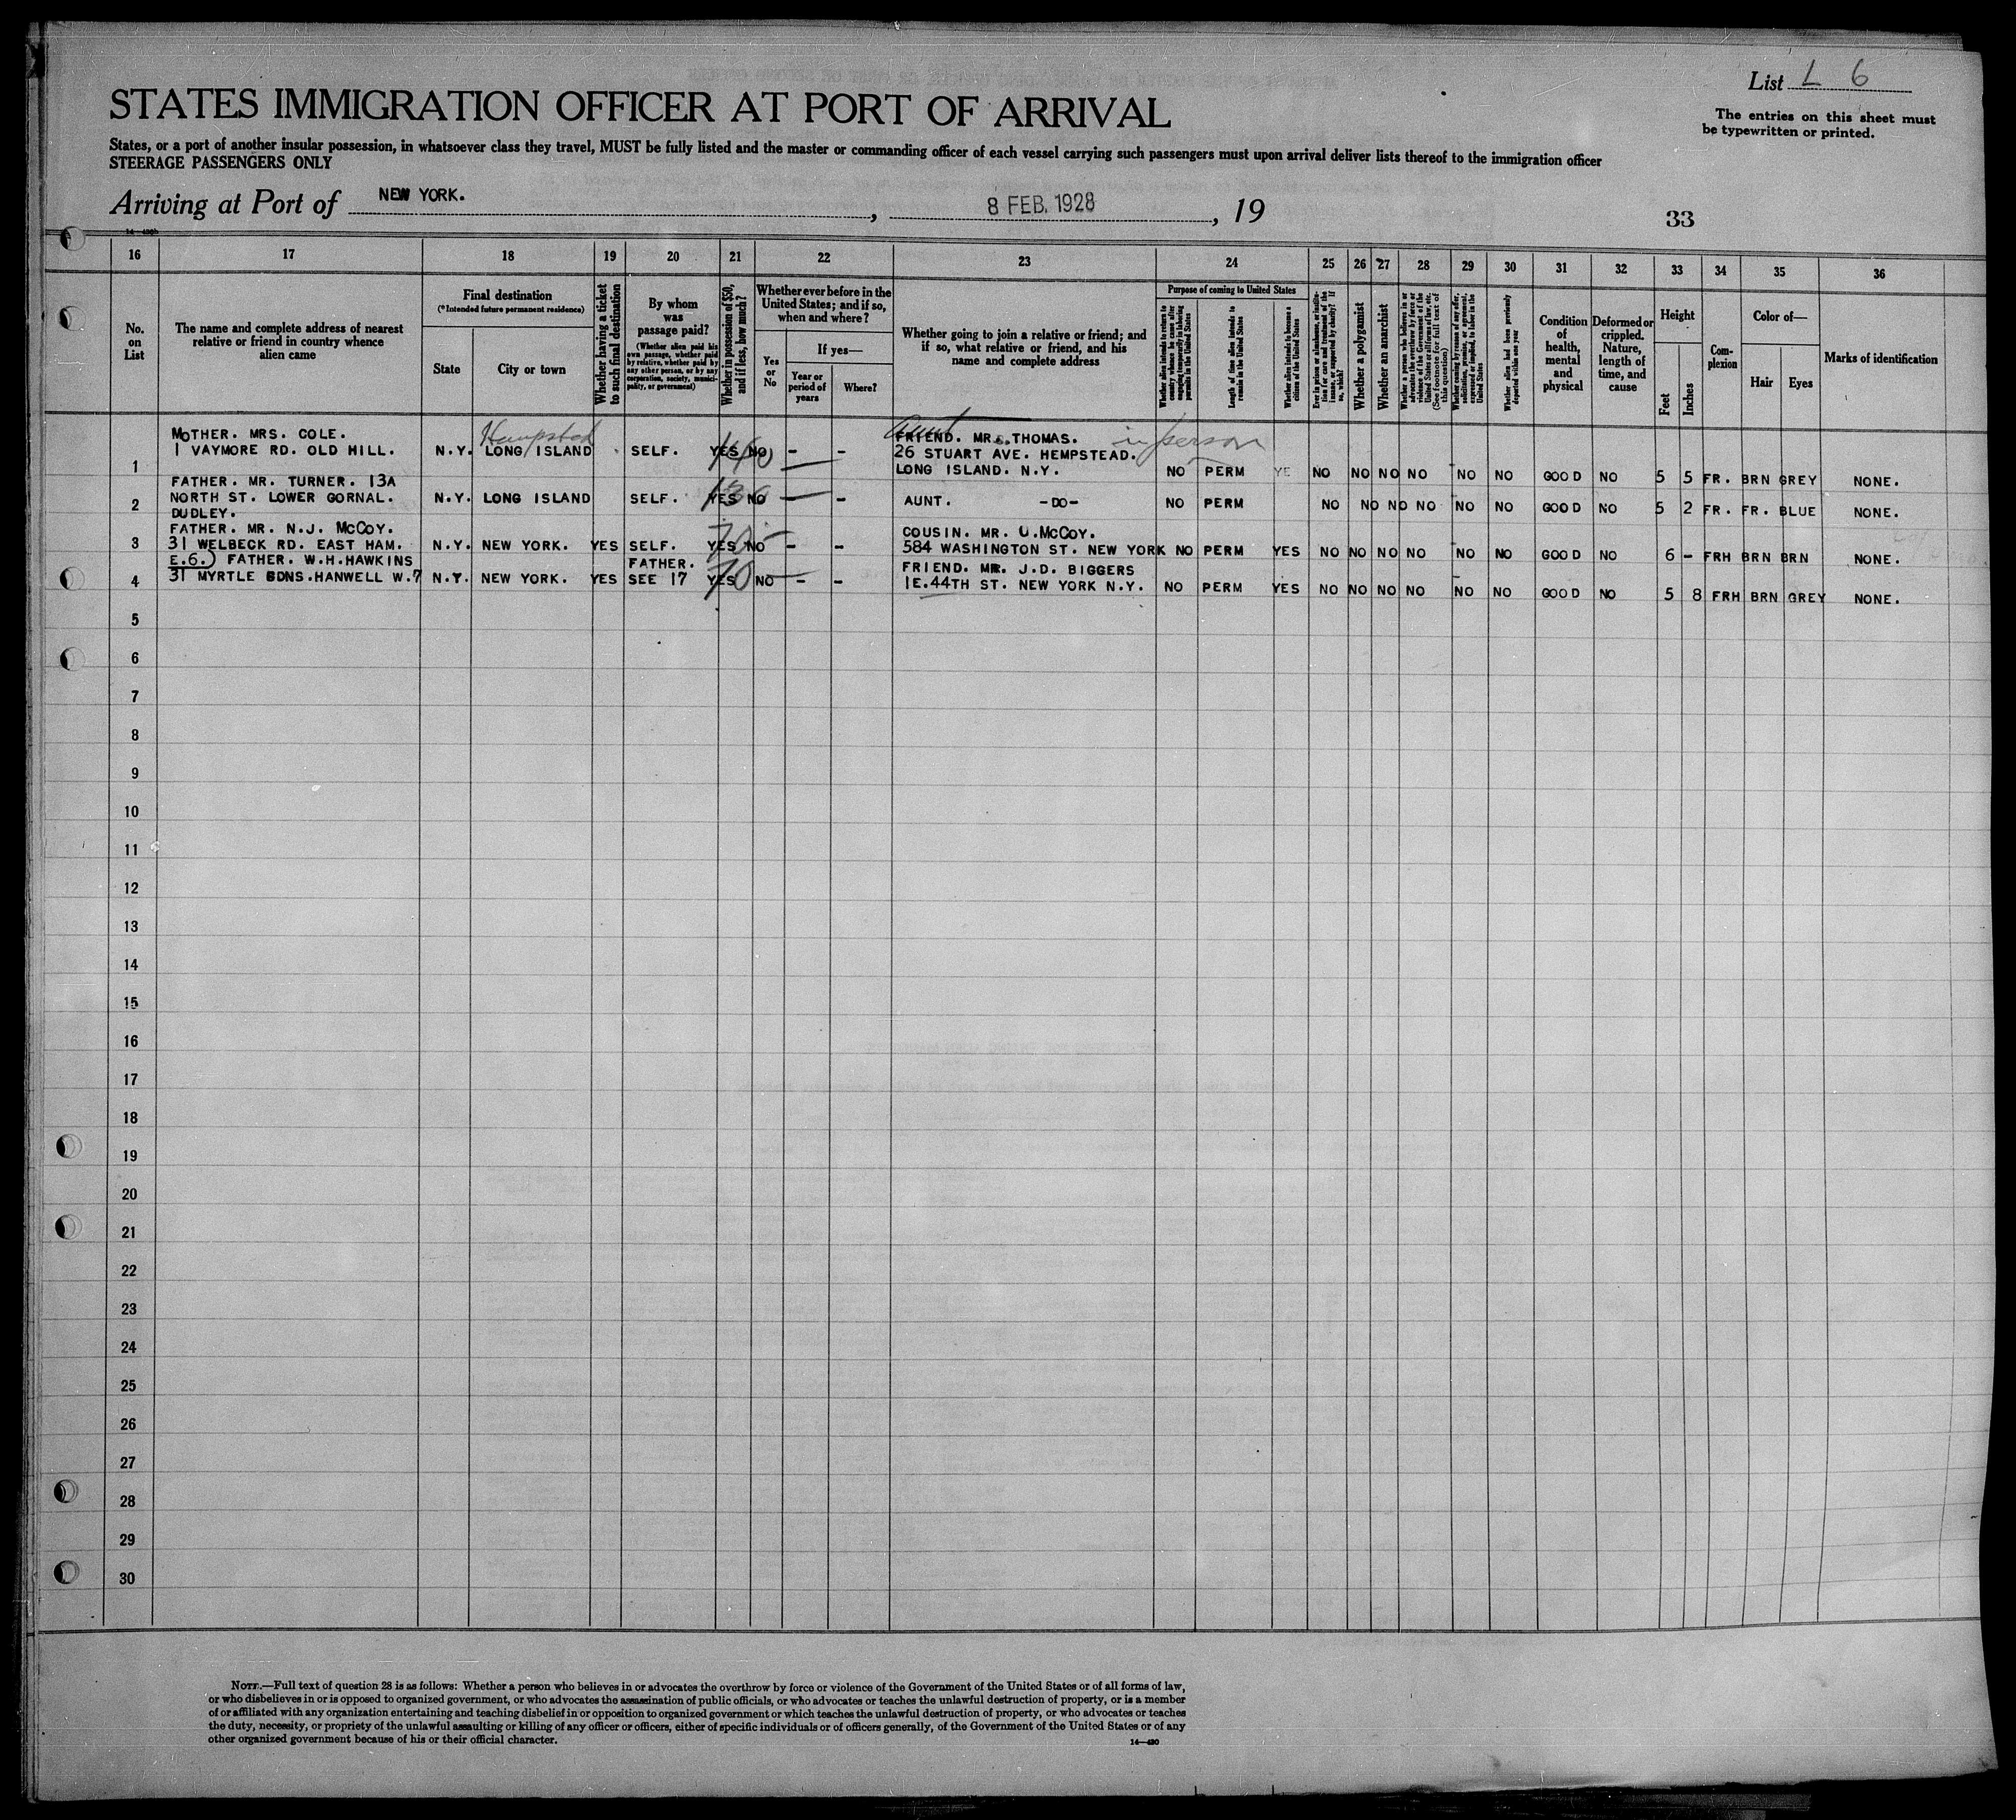 List L 6
The entries on this sheet must
be typewritten or printed.
STATES IMMIGRATION OFFICER AT PORT OF ARRIVAL
States, or a port of another insular possession, in whatsoever class they travel, MUST be fully listed and the master or commanding officer of each vessel carrying such passengers must upon arrival deliver lists thereof to the immigration officer
STEERAGE PASSENGERS ONLY
Arriving at Port of NEW YORK. , 8 FEB. 1928 , 19
33
16 17 18 19 20 21 22 23 24 25 26 27 28 29 30 31 32 33 34 35 36
No. on List
The name and complete address of nearest relative or friend in country whence alien came
Final destination
(*Intended future permanent residence)
State
City or town
Whether having a ticket to such final destination
By whom was passage paid?
(Whether alien paid his own passage, whether paid by relative, whether paid by any other person, or by any corporation, society, municipality, or government)
Whether in possession of $50, and if less, how much?
Whether ever before in the United States; and if so, when and where?
Yes or No
If yes—
Year or period of years
Where?
Whether going to join a relative or friend; and if so, what relative or friend, and his name and complete address
Purpose of coming to United States
Whether alien intends to return to country whence he came after engaging temporarily in laboring pursuits in the United States
Length of time alien intends to remain in the United States
Whether alien intends to become a citizen of the United States
Ever in prison or almshouse, or institution for care and treatment of the insane, or supported by charity? If so, which?
Whether a polygamist
Whether an anarchist
Whether a person who believes in or advocates the overthrow by force or violence of the Government of the United States or all forms of law, etc. (See footnote for full text of this question)
Whether coming by reason of any offer, solicitation, promise, or agreement, expressed or implied, to labor in the United States
Whether alien had been previously deported within one year
Condition of health, mental and physical
Deformed or crippled. Nature, length of time, and cause
Height
Feet
Inches
Complexion
Color of—
Hair
Eyes
Marks of identification
Hempstead
Aunt
in person
MOTHER. MRS. COLE.
1 VAYMORE RD. OLD HILL.
1 N.Y. LONG ISLAND SELF. YES NO - - FRIEND. MR. THOMAS.
26 STUART AVE. HEMPSTEAD.
LONG ISLAND. N.Y. NO PERM YE NO NO NO NO NO NO GOOD NO 5 5 FR. BRN GREY NONE.
FATHER. MR. TURNER. 13A
NORTH ST. LOWER GORNAL.
DUDLEY.
2 N.Y. LONG ISLAND SELF. YES NO - AUNT. -DO- NO PERM NO NO NO NO NO NO GOOD NO 5 2 FR. FR. BLUE NONE.
FATHER. MR. N.J. MCCOY.
31 WELBECK RD. EAST HAM.
E.6.)
3 N.Y. NEW YORK. YES SELF. YES NO - - COUSIN. MR. U.MCCOY.
584 WASHINGTON ST. NEW YORK NO PERM YES NO NO NO NO NO NO GOOD NO 6 - FRH BRN BRN NONE.
FATHER. W.H.HAWKINS
31 MYRTLE GDNS.HANWELL W.7
4 N.Y. NEW YORK. YES FATHER.
SEE 17 YES 70 NO - - FRIEND. MR. J.D. BIGGERS
1E.44TH ST. NEW YORK N.Y. NO PERM YES NO NO NO NO NO NO GOOD NO 5 8 FRH BRN GREY NONE.
5
6
7
8
9
10
11
12
13
14
15
16
17
18
19
20
21
22
23
24
25
26
27
28
29
30
NOTE.—Full text of question 28 is as follows: Whether a person who believes in or advocates the overthrow by force or violence of the Government of the United States or of all forms of law,
or who disbelieves in or is opposed to organized government, or who advocates the assassination of public officials, or who advocates or teaches the unlawful destruction of property, or is a member
of or affiliated with any organization entertaining and teaching disbelief in or opposition to organized government or which teaches the unlawful destruction of property, or who advocates or teaches
the duty, necessity, or propriety of the unlawful assaulting or killing of any officer or officers, either of specific individuals or of officers generally, of the Government of the United States or of any
other organized government because of his or their official character.
14—430